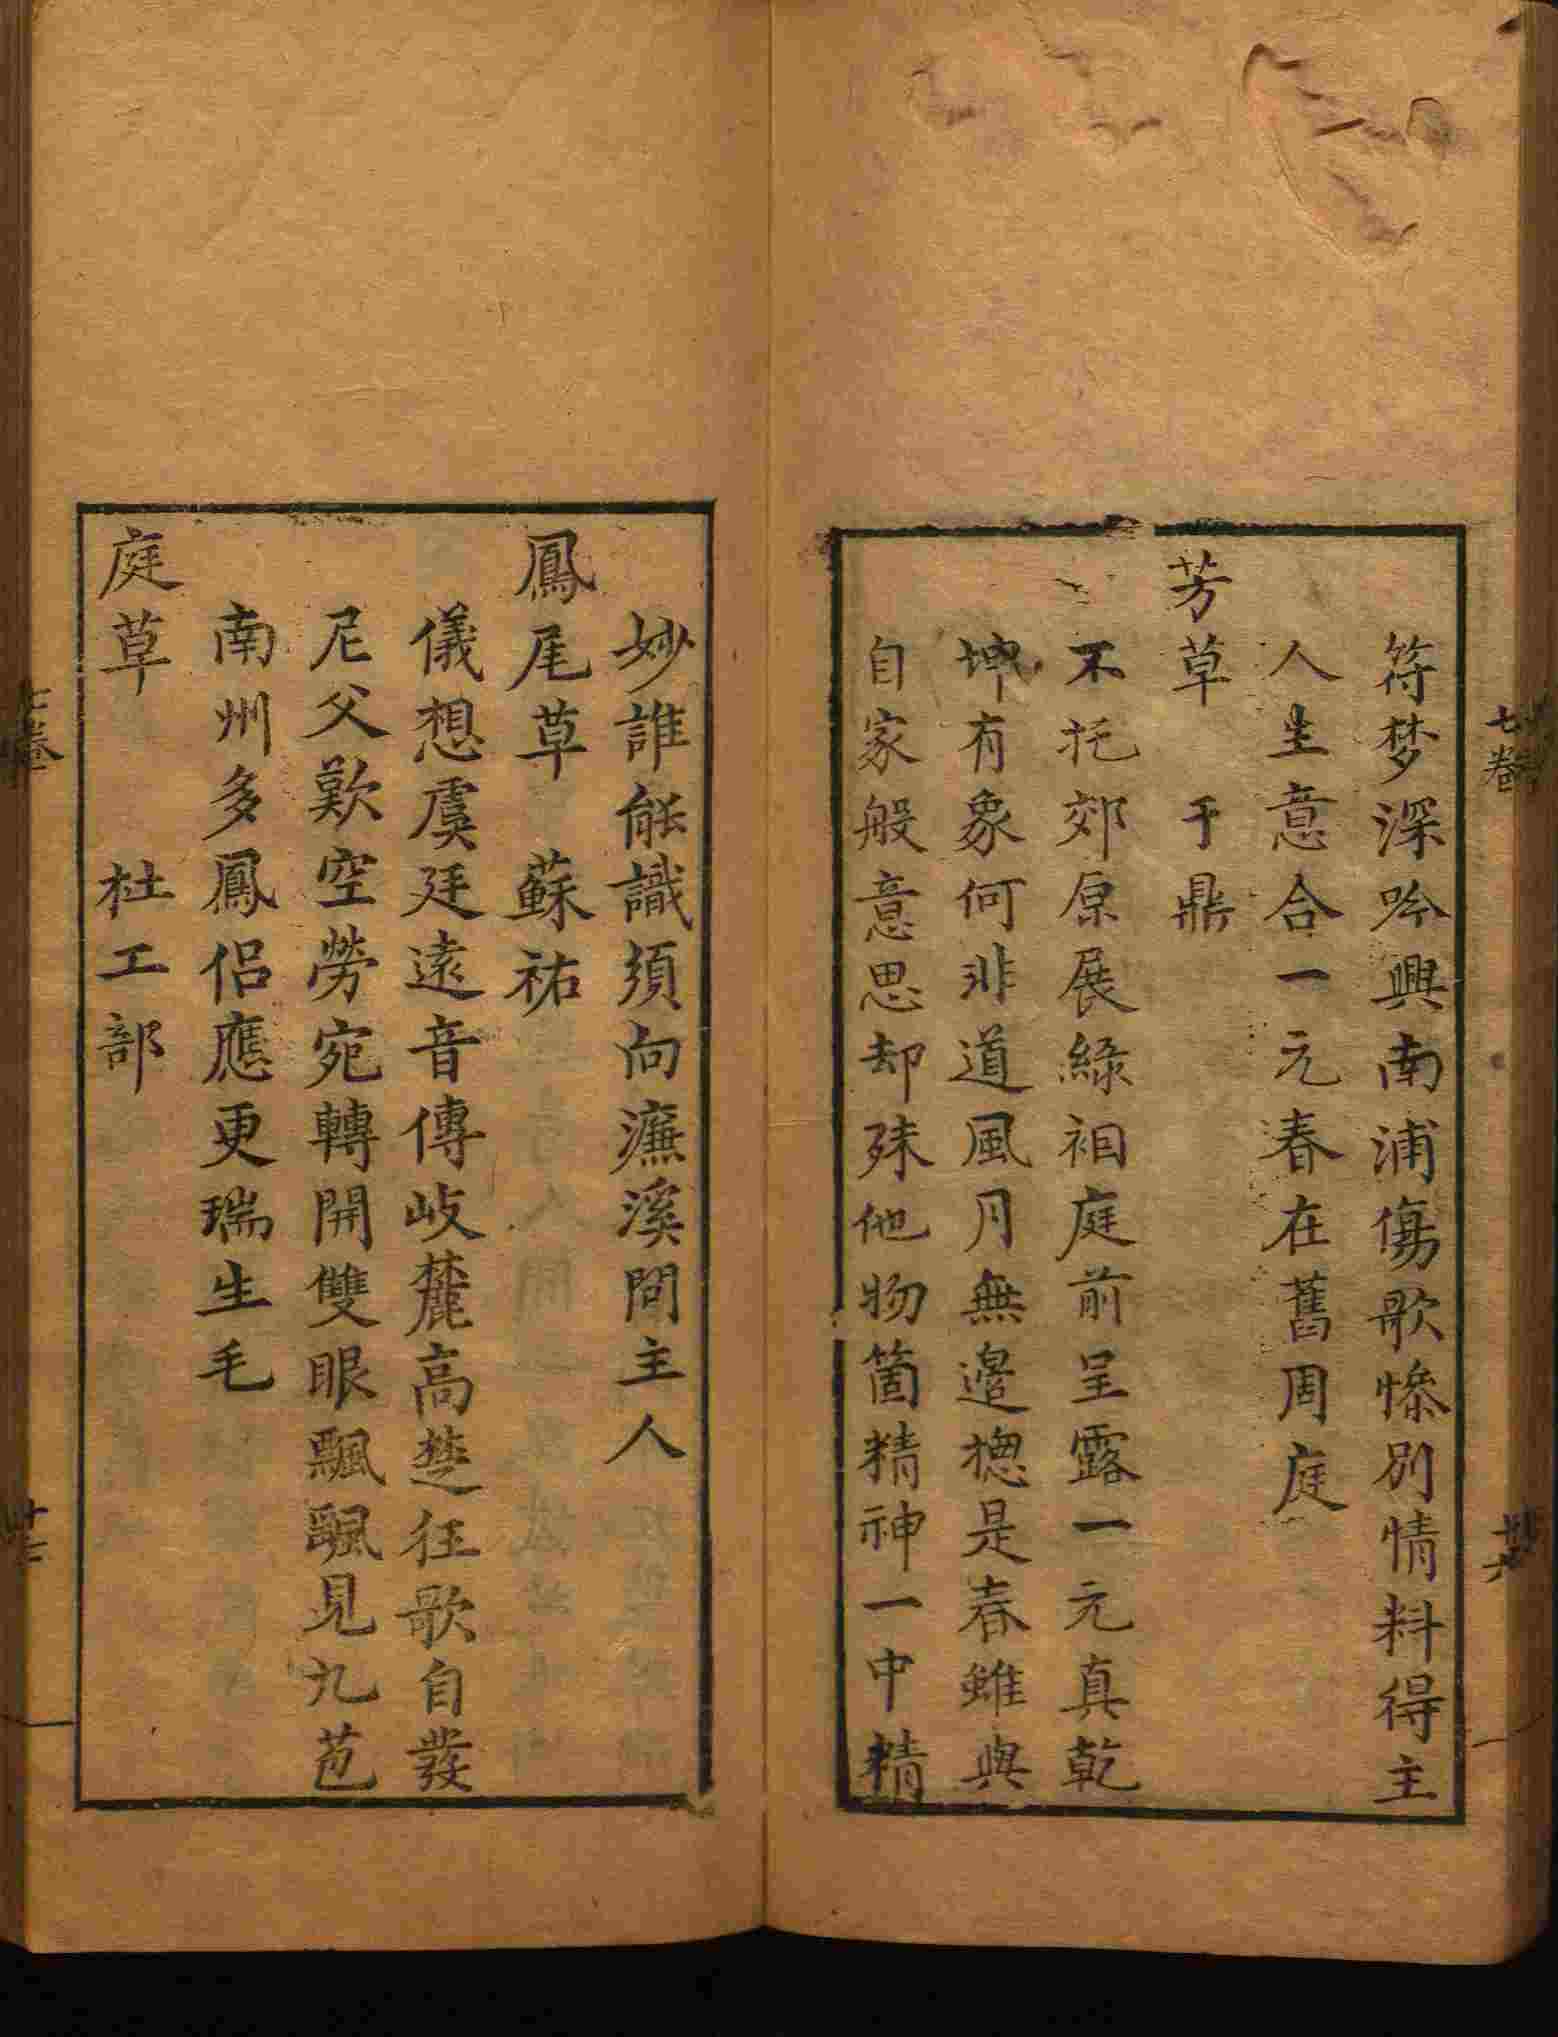 符梦深吟興南浦傷歌慘別情料得主
人生意合一元春在舊周庭
芳草　于鼎
不托郊原展綠裀庭前呈露一元真乾
坤有象何非道風月無邊摠是春雖與
自家般意思却殊他物箇精神一中精
七卷
妙誰能識須向濂溪問主人
鳳尾草　蘇祐
儀想虞廷遠音傳岐麓高楚狂歌自發
尼父歎空勞宛轉開雙眼飄颻見九苞
南州多鳳侣應更瑞生毛
庭草　杜工部
七卷
十七